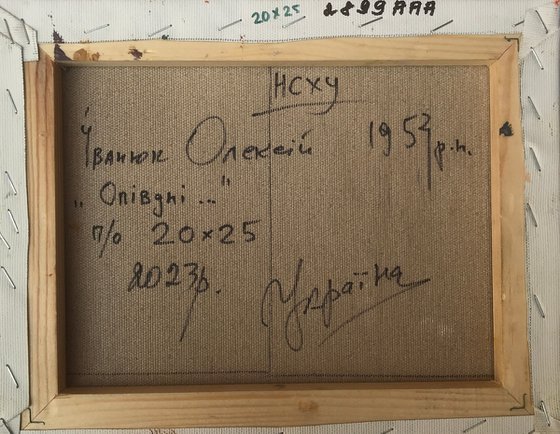 20×25 2899AAA
НСХУ
Іванюк Олексій 1952 р.н.
„Опівдні..."
п/о 20×25
2023р.
Україна